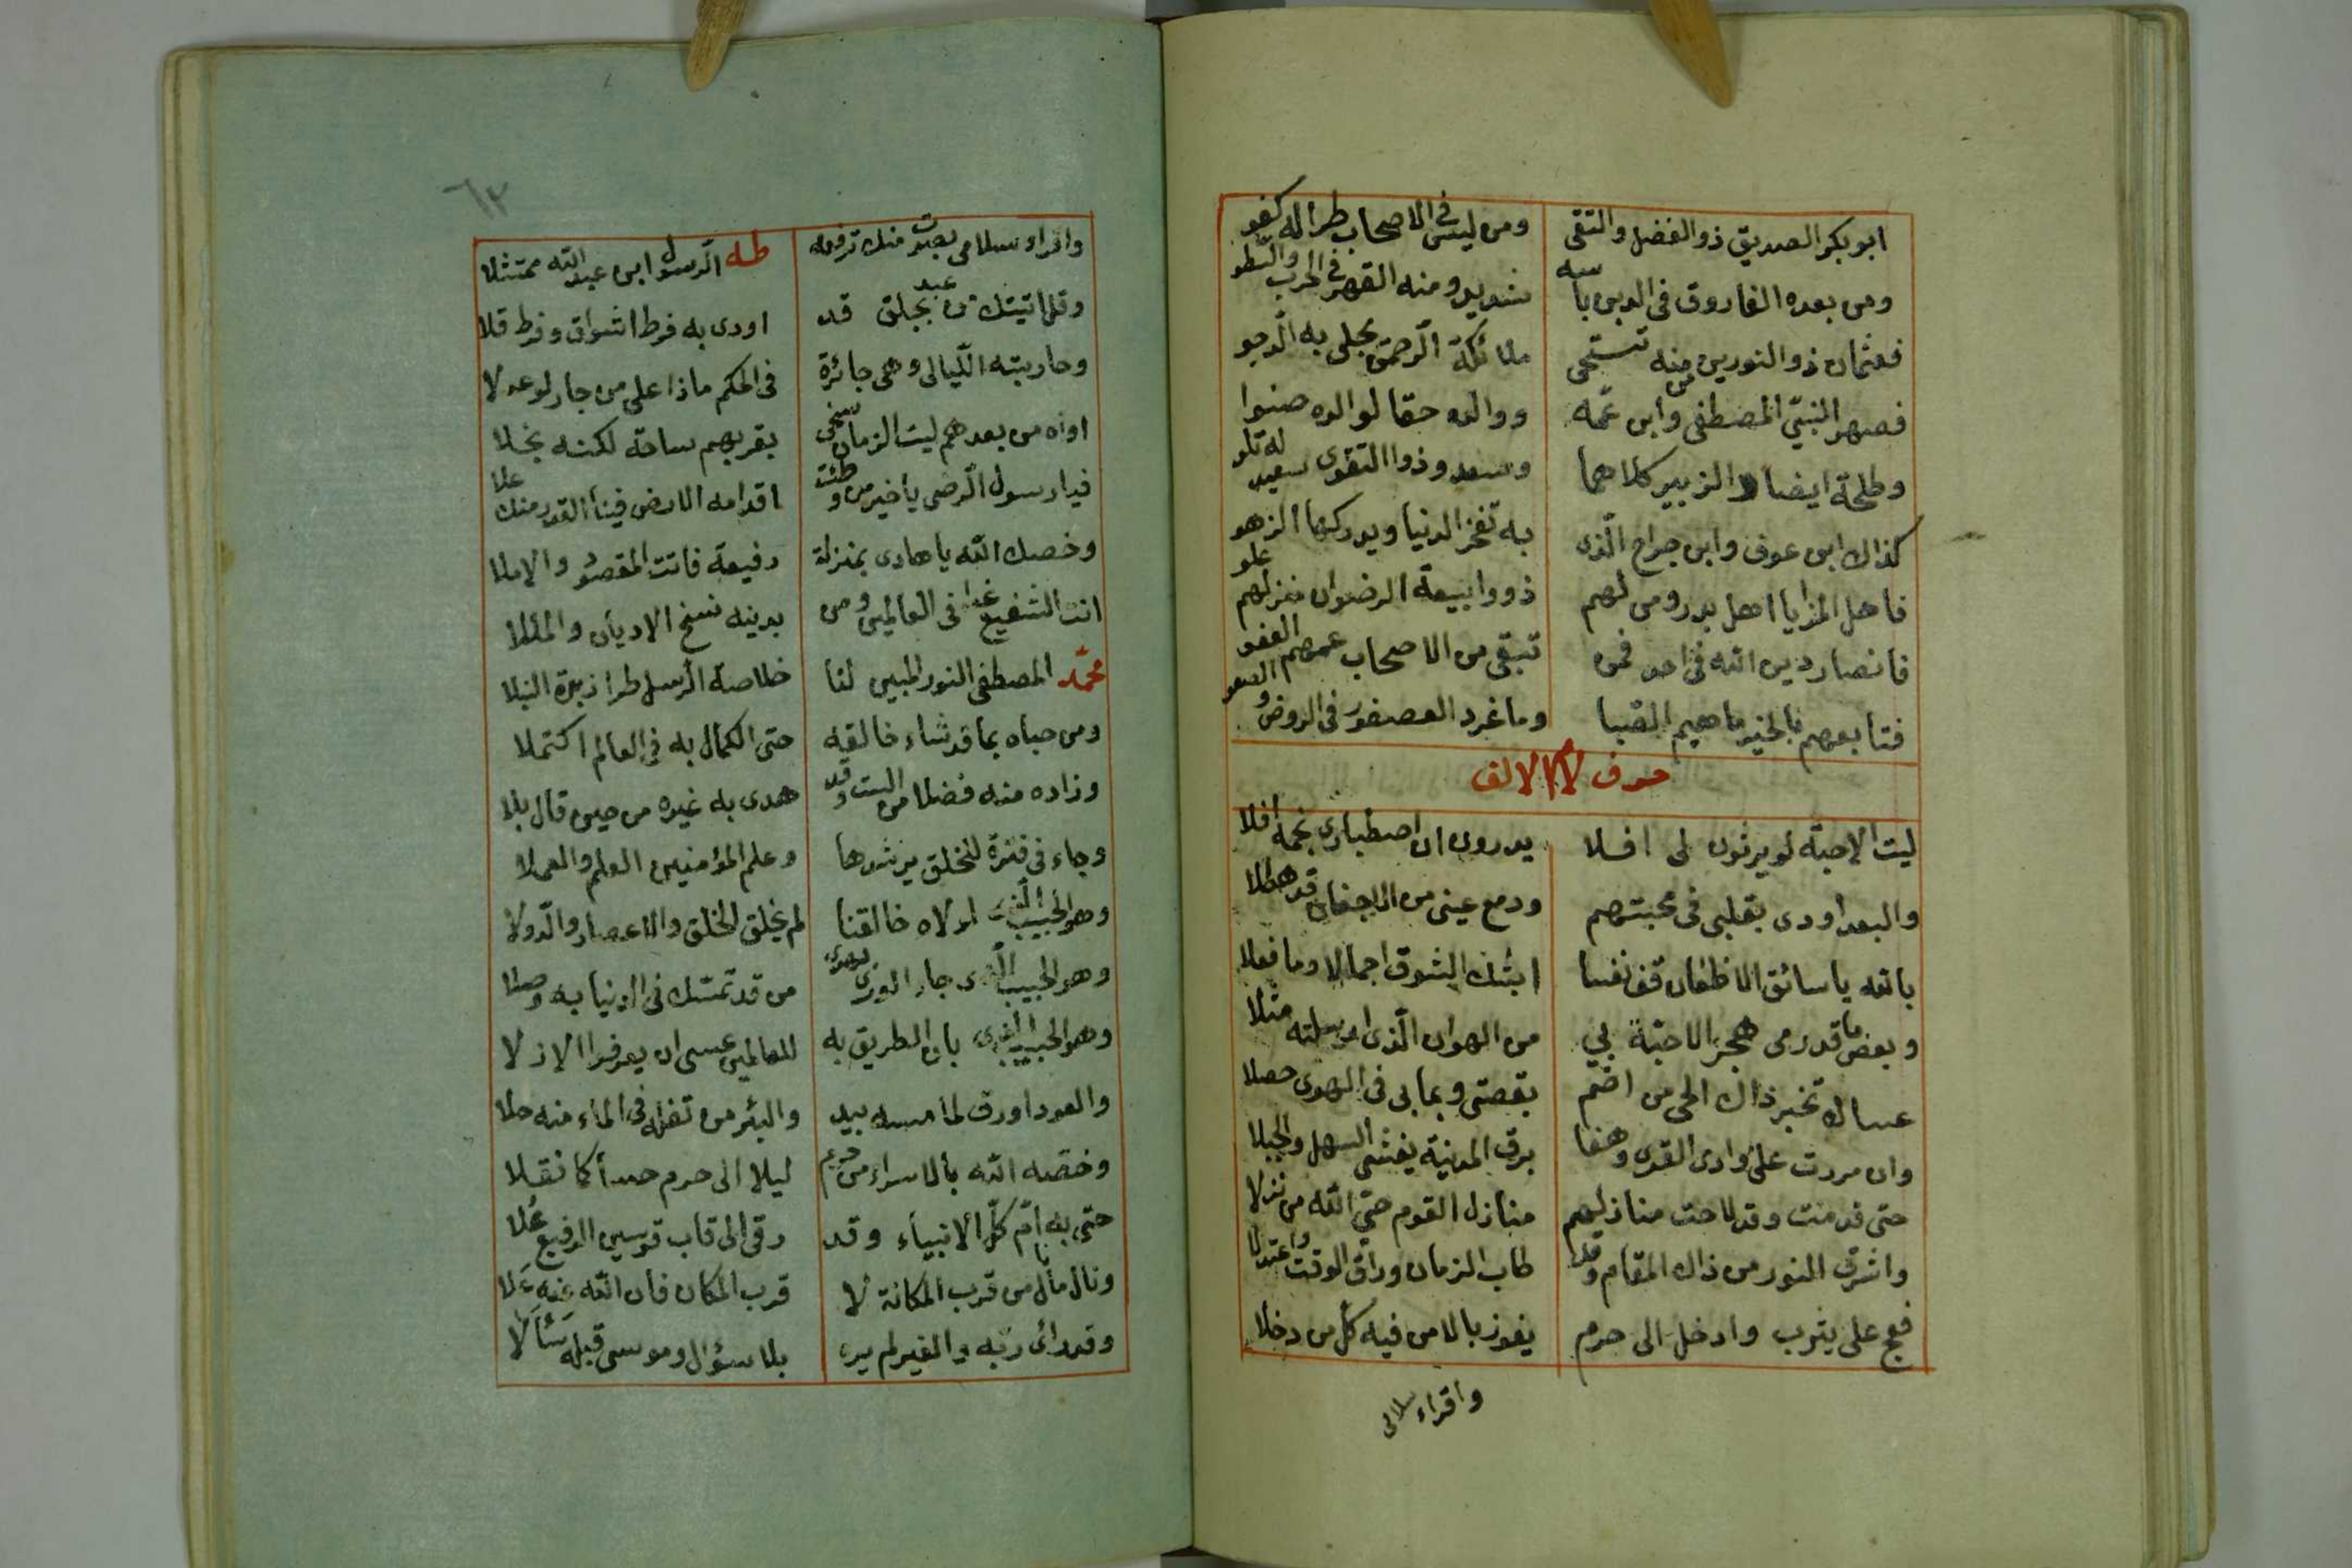 ابو بكر الصديق ذو الفضل والتقى ومن ليس فى الاصحاب طرا له كفو
ومن بعده الفاروق فى الدين باسه شديد ومنه القهر فى الحرب والسطو
فعثمان ذو النورين من منه تستحى ملائكة الرحمن يجلى به الدجو
فصهر النبى المصطفى وابن عمه ووالده حقا لوالده صنوا
وطلحة ايضا والزبير كلاهما وسعد وذوا التقوى سعيد له تلو
كذاك ابن عوف وابن جراح الذى به تفخر الدنيا ويدركها الزهو
فاهل المزايا اهل بدر ومن لهم ذووا بيعة الرضوان منزلهم علو
فانصار دين الله فى احد فمن تبقى من الاصحاب عمهم العفو
فتابعهم بالخير ما هيم الصبا وما غرد العصفور فى الروض و الصعو
حرف لام الالف
ليت الاحبة لو يرثون لى افلا يدرون ان اصطبارى نجمه افلا
والبعد اودى بقلبى فى محبتهم ودمع عينى من الاجفان قد هطلا
بالله يا سائق الاظعان قف نفسا ابثك الشوق اجمالا وما فعلا
وبعض ما قد رمى هجر الاحبة بي من الهوان الذى ارسلته مثلا
عساك تخبر ذاك الحى من اضم بقصتى وبما بى فى الهوى حصلا
وان مررت على وادى القرى وهفا برق المدنية يغشى السهل والجبلا
حتى قدمت وقد لاحت منازلهم منازل القوم حتى الله من نزلا
واشرق النور من ذاك المقام وقد طاب الزمان وراق الوقت واعتدلا
فعج على يثرب وادخل الى حرم يفوز بالامن فيه كل من دخلا
واقراء سلامى
٦٣
واقراء سلامى بصوت منك ترفعه طه الرسول ابن عبد الله ممتثلا
وقل اتيتك من عبد بجلق قد اودى به فرط اشواق وفرط قلا
وحاربته الليالى وهى جائرة فى الحكم ماذا على من جار لو عدلا
اواه من بعدهم ليت الزمان سخى بقربهم ساعة لكنه بخلا
فيا رسول الرضى يا خير من وطئت اقدامه الارض فينا القدر منك علا
وخصك الله يا هادى بمنزلة رفيعة فاتت المقصود والاملا
انت الشفيع غدا فى العالمين ومن بدينه نسخ الاديان والمللا
محمد المصطفى النور المبين لنا خلاصة الرسل طرا زبدة النبلا
ومن حباه بما قد شاء خالقه حتى الكمال به فى العالم اكتملا
وزاده منه فضلا من الست وقد هدى به غيره من حين قال بلا
وجاء فى فترة للخلق يرشدها وعلم المؤمنين العلم والعملا
وهو الحبيب الذى لولاه خالقنا لم يخلق الخلق والاعصار والدولا
وهو الحبيب الذى جار الورى من قد تمسك فى الدنيا به وصلا
وهو الحبيب الذى بان الطريق به للعالمين عسى ان يعرفوا الازلا
والعود اورق لما مسه بيد والبئر من تفله فى الماء منه حلا
وخصه الله بالاسراء من حرم ليلا الى حرم كما نقلا
حتى به ام كل الانبياء وقد رقى الى قاب قوسين الرفيع علا
ونال ما نال من قرب المكانة لا قرب المكان فان الله عنه علا
وقد رأى ربه والغير لم يره بلا سؤال وموسى قبله سألا